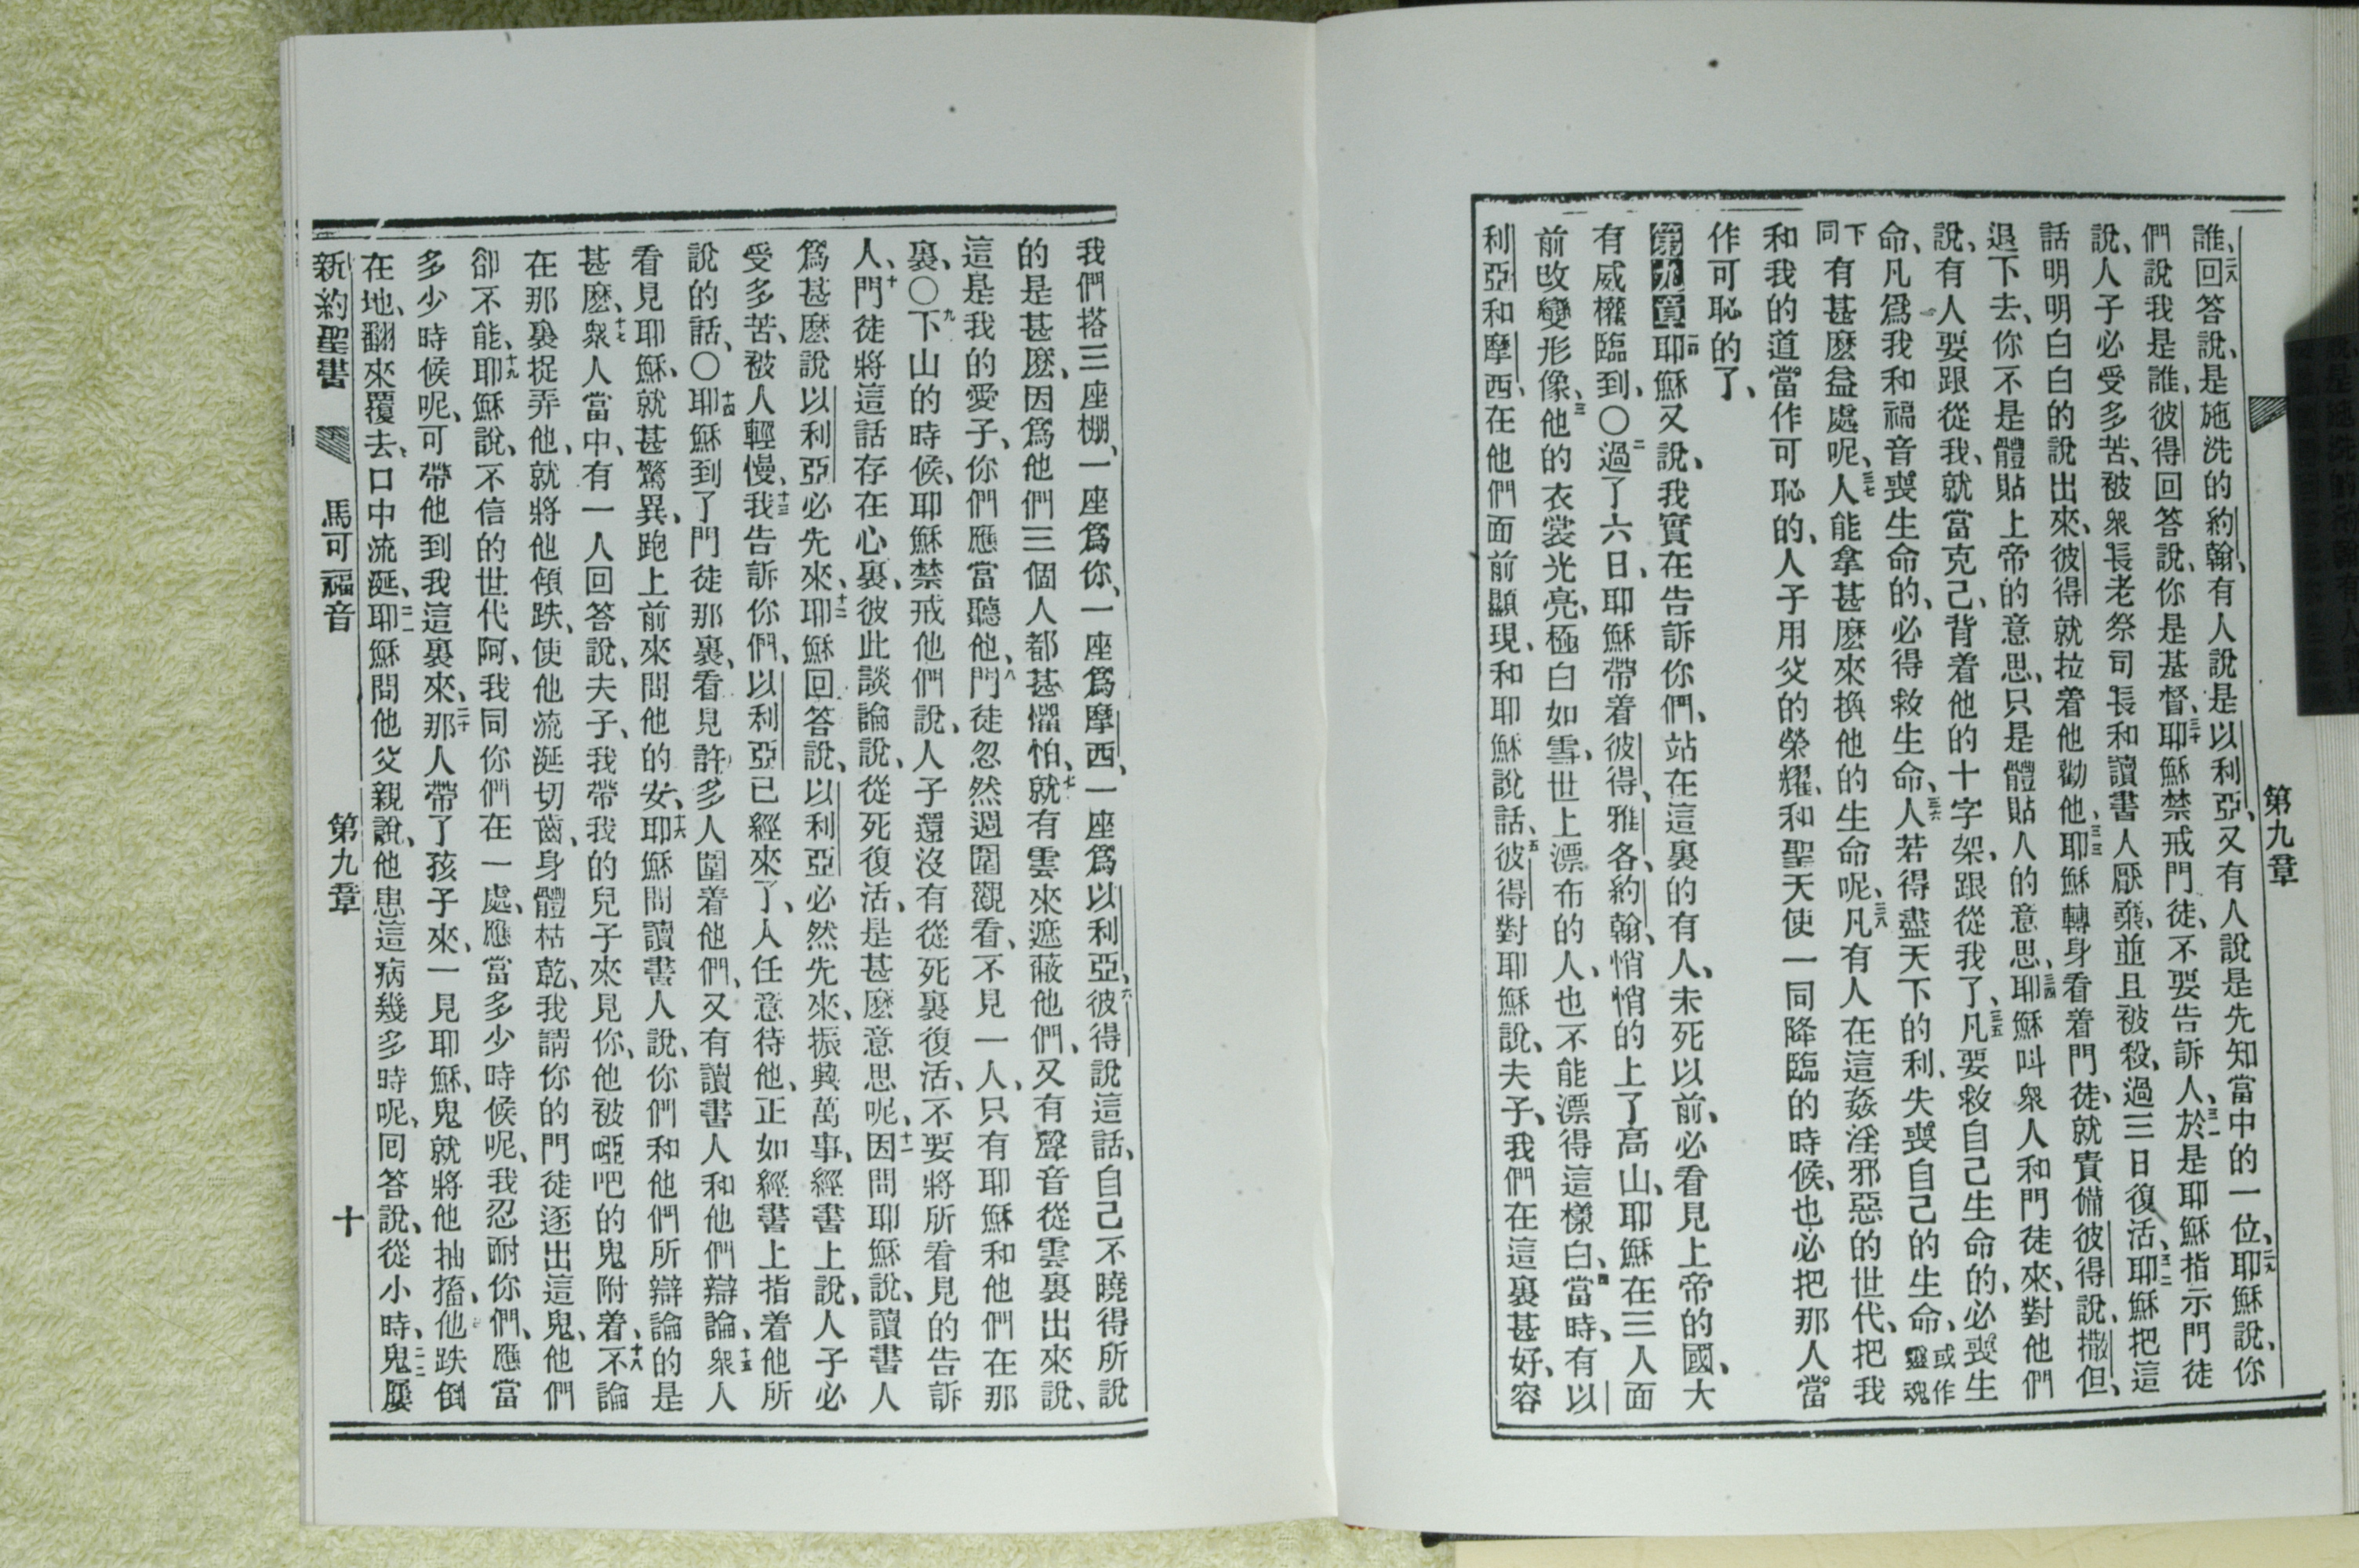 第九章
誰、二八回答說、是施洗的約翰、有人說是以利亞、又有人說是先知當中的一位、二九耶穌說、你
們說我是誰、彼得回答說、你是基督、三十耶穌禁戒門徒、不要告訴人、三一於是耶穌指示門徒
說、人子必受多苦、被衆長老祭司長和讀書人厭棄、並且被殺、過三日復活、三二耶穌把這
話明明白白的說出來、彼得就拉着他勸他、三三耶穌轉身看着門徒、就責備彼得說、撒但、
退下去、你不是體貼上帝的意思、只是體貼人的意思、三四耶穌叫衆人和門徒來、對他們
說、有人要跟從我、就當克己、背着他的十字架、跟從我了、三五凡要救自己生命的、必喪生
命、凡爲我和福音喪生命的、必得救生命、三六人若得盡天下的利、失喪自己的生命、或作靈魂
下同有甚麽益處呢、三七人能拿甚麽來換他的生命呢、三八凡有人在這姦淫邪惡的世代、把我
和我的道當作可恥的、人子用父的榮耀、和聖天使一同降臨的時候、也必把那人當
作可恥的了、
第九章一耶穌又說、我實在告訴你們、站在這裏的有人、未死以前、必看見上帝的國、大
有威權臨到、〇二過了六日、耶穌帶着彼得、雅各、約翰、悄悄的上了高山、耶穌在三人面
前改變形像、三他的衣裳光亮、極白如雪、世上漂布的人、也不能漂得這樣白、四當時、有以
利亞和摩西、在他們面前顯現、和耶穌說話、五彼得對耶穌說、夫子、我們在這裏甚好、容
我們搭三座棚、一座爲你、一座爲摩西、一座爲以利亞、六彼得說這話、自己不曉得所說
的是甚麽、因爲他們三個人都甚懼怕、七就有雲來遮蔽他們、又有聲音從雲裏出來說、
這是我的愛子、你們應當聽他、八門徒忽然週圍觀看、不見一人、只有耶穌和他們在那
裏、〇九下山的時候、耶穌禁戒他們說、人子還沒有從死裏復活、不要將所看見的告訴
人、十門徒將這話存在心裏、彼此談論說、從死復活、是甚麽意思呢、十一因問耶穌說、讀書人
爲甚麽說以利亞必先來、十二耶穌回答說、以利亞必然先來、振興萬事、經書上說、人子必
受多苦、被人輕慢、十三我告訴你們、以利亞已經來了、人任意待他、正如經書上指着他所
說的話、〇十四耶穌到了門徒那裏、看見許多人圍着他們、又有讀書人和他們辯論、十五衆人
看見耶穌、就甚驚異、跑上前來問他的安、十六耶穌問讀書人說、你們和他們所辯論的是
甚麽、十七衆人當中、有一人回答說、夫子、我帶我的兒子來見你、他被啞吧的鬼附着、十八不論
在那裏捉弄他、就將他傾跌、使他流涎切齒、身體枯乾、我請你的門徒逐出這鬼、他們
卻不能、十九耶穌說、不信的世代阿、我同你們在一處、應當多少時候呢、我忍耐你們、應當
多少時候呢、可帶他到我這裏來、二十那人帶了孩子來、一見耶穌、鬼就將他抽搐、他跌倒
在地、翻來覆去、口中流涎、二一耶穌問他父親說、他患這病幾多時呢、回答說、從小時、二二鬼屢
新約聖書　馬可福音　第九章　十